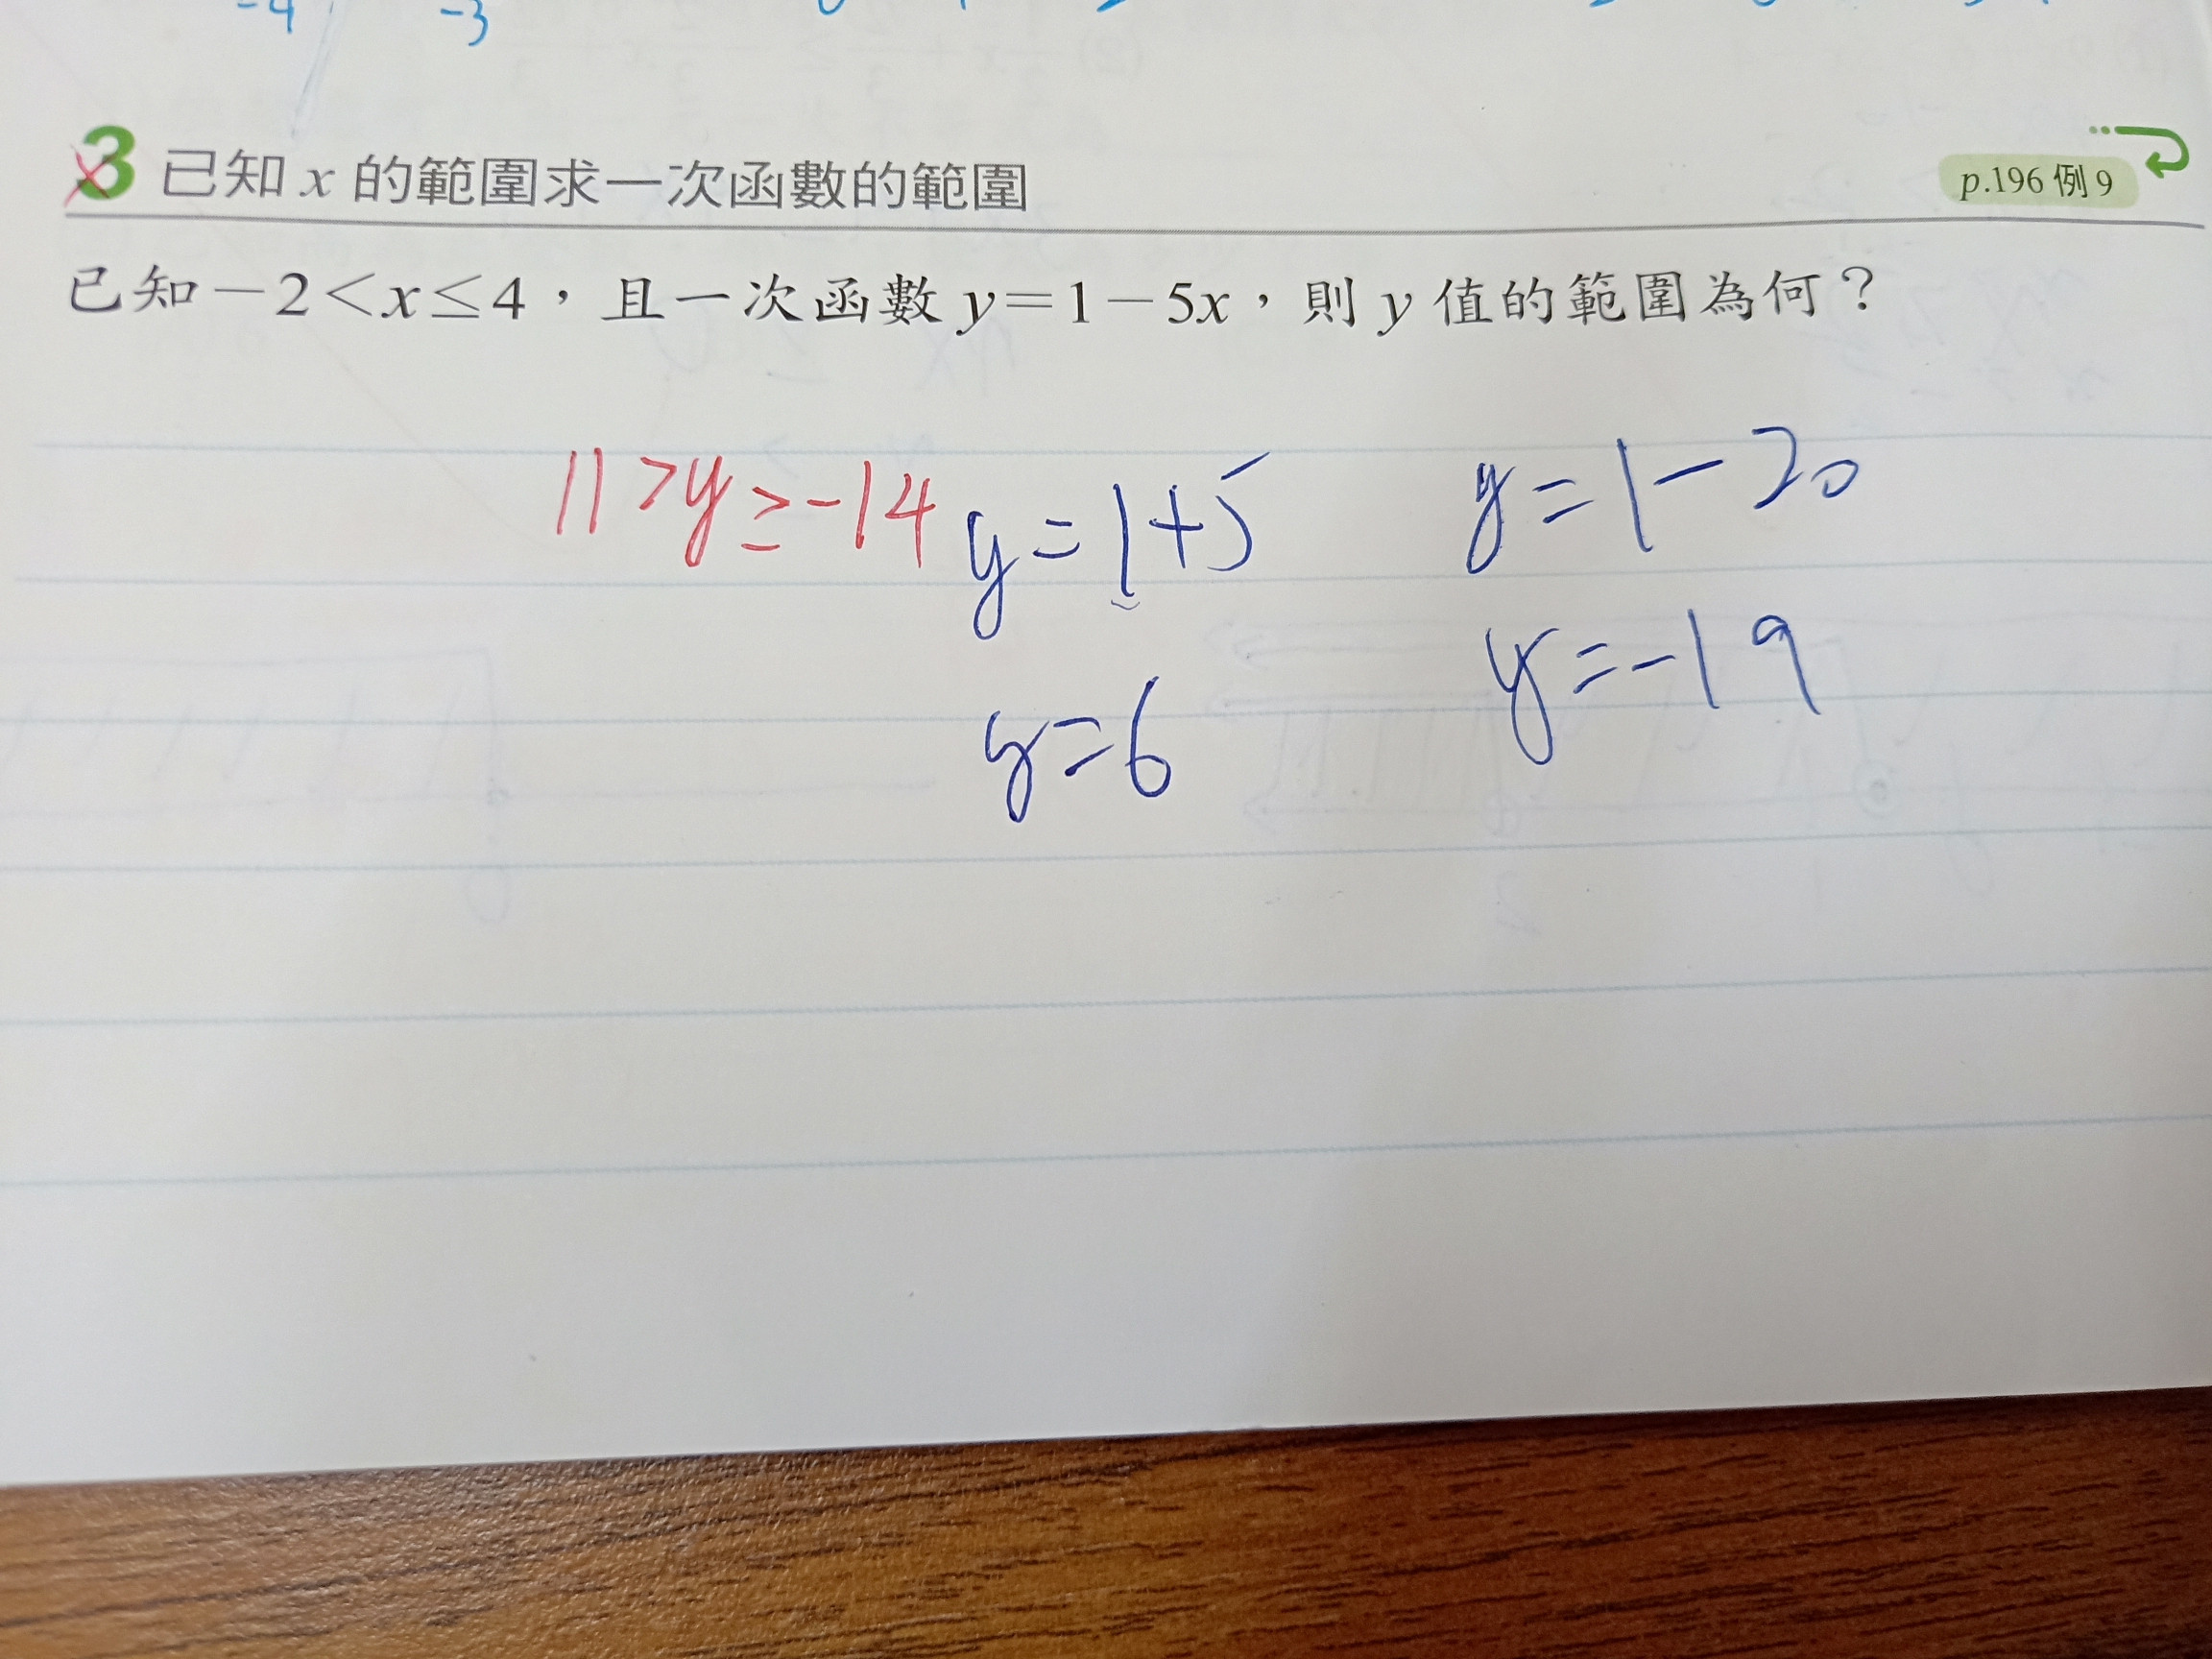 -4 -3
3 已知 x 的範圍求一次函數的範圍
p.196 例 9
已知－2＜x≤4，且一次函數 y＝1－5x，則 y 值的範圍為何？
11>y≥-14
y=1+5
y=6
y=1-20
y=-19